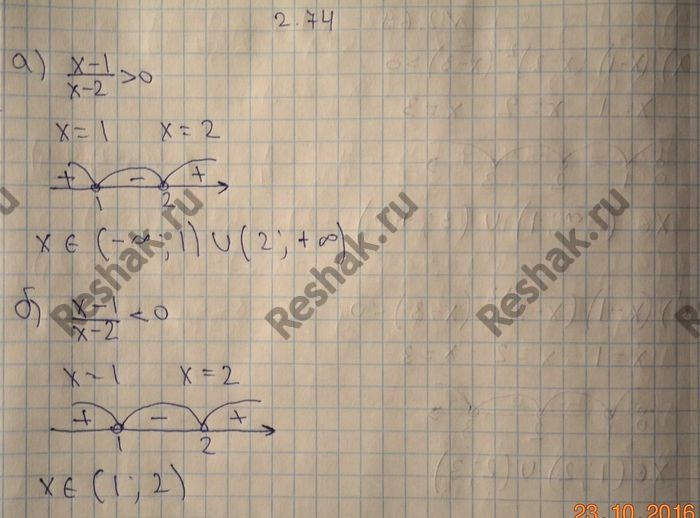 2.74
а) x-1
x-2 >0
x=1 x=2
+ - +
1 2
x ∈ (-∞; 1) ∪ (2; +∞)
б) x-1
x-2 <0
x-1 x=2
+ - +
1 2
x ∈ (1; 2)
Reshak.ru
Reshak.ru
Reshak.ru
Reshak.ru
23.10.2016